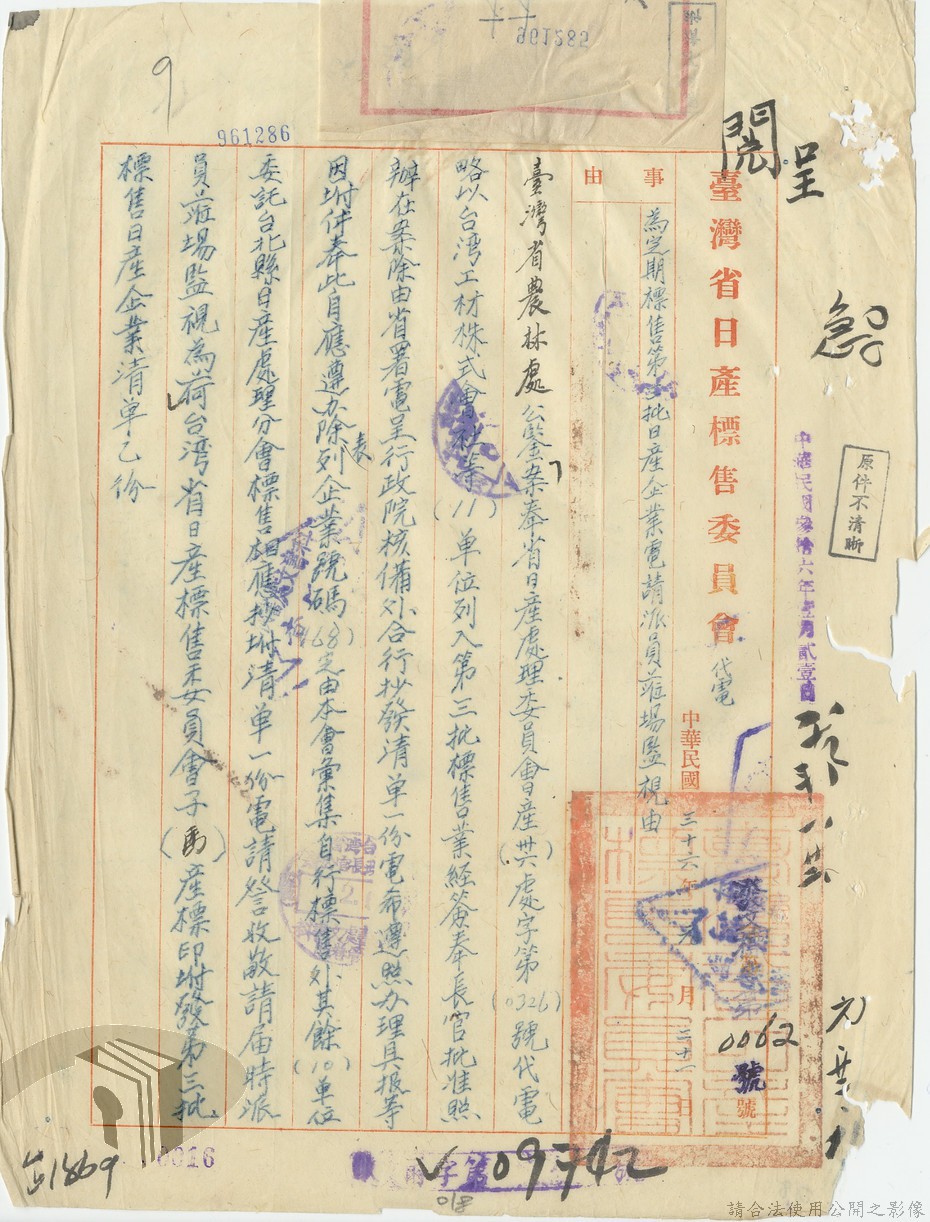 961285
9
961286
呈
閱
急
原件不清晰
中華民國參拾六年壹月貳壹日
臺灣省日產標售委員會
代電
中華民國三十六年元月二十一日
0062號
事由
為定期標售第三批日產企業電請派員蒞場監視由
臺灣省農林處公鑒案奉省日產處理委員會產(卅六)處字第(0326)號代電
略以台湾工材株式會社等(11)单位列入第三批標售業経簽奉長官批准照
辦在案除由省署電呈行政院核備外合行抄發清单一份電希遵照办理具报等
因坿件奉此自應遵办除列表企業號碼(168)定由本會彙集自行標售外其餘(10)单位
委託台北縣日產處理分會標售相應抄坿清单一份電請詧收敬請届時派
員蒞場監視為荷台湾省日產標售委員會子(馬)產標印坿發第三批
標售日產企業清单乙份
0016
字第
09742
018
請合法使用公開之影像